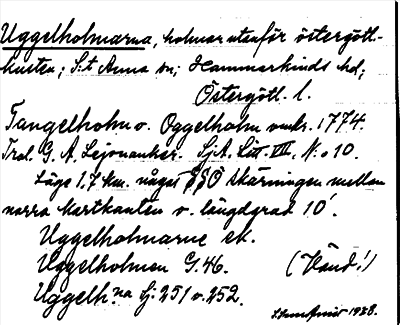 Uggelholmarna, holmar utanför östergöt-
kusten; S:t Anna sn; Hammarkinds hd;
Östergötl. l.
Tangelholm o. Oggelholm omkr. 1774.
Trol. G. A. Lejonanker. SjA. Litt. VII. N:o 10.
Läge 1,7 km. något SSO skärningen mellan
norra kartkanten o. längdgrad 10'.
Uggelholmarne ek.
Uggelholmen G. 46. (Vänd!)
Uggelh.na Sj. 251 o. 252.
1928.